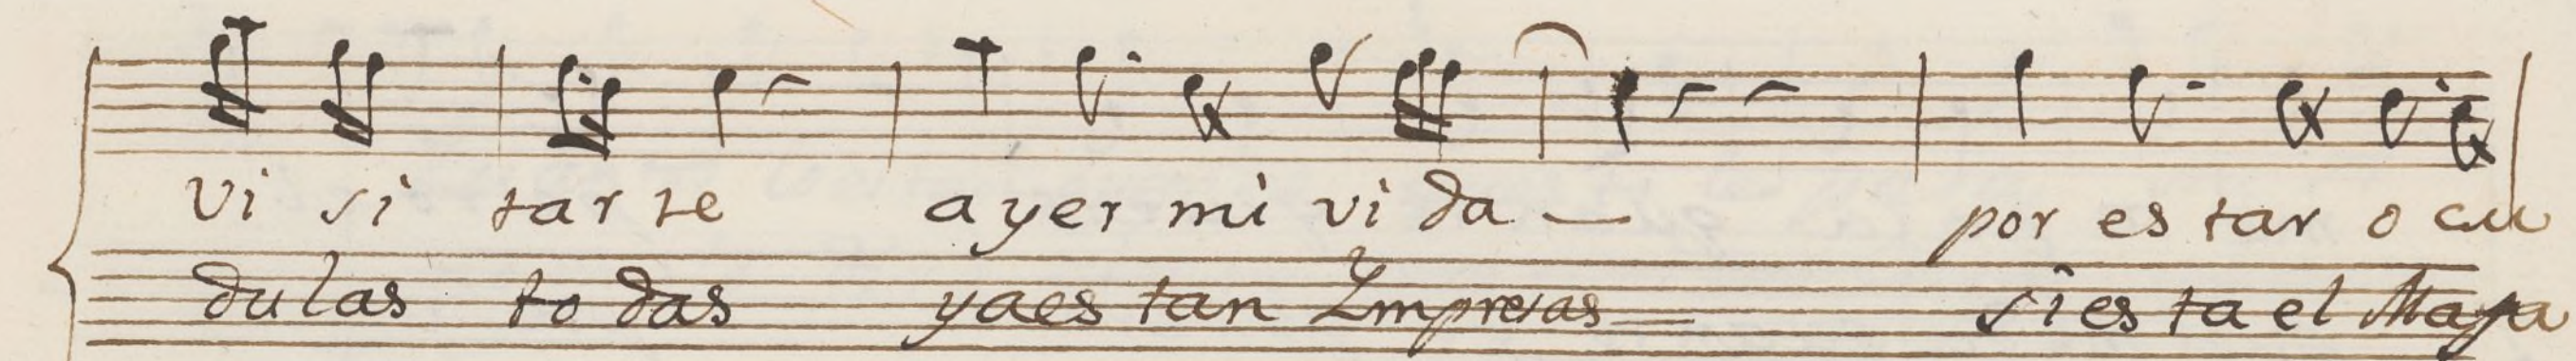 vi si tar te ayer mi vi da — por es tar o cu
du las to das yaes tan Impresas — si es ta el Mapa